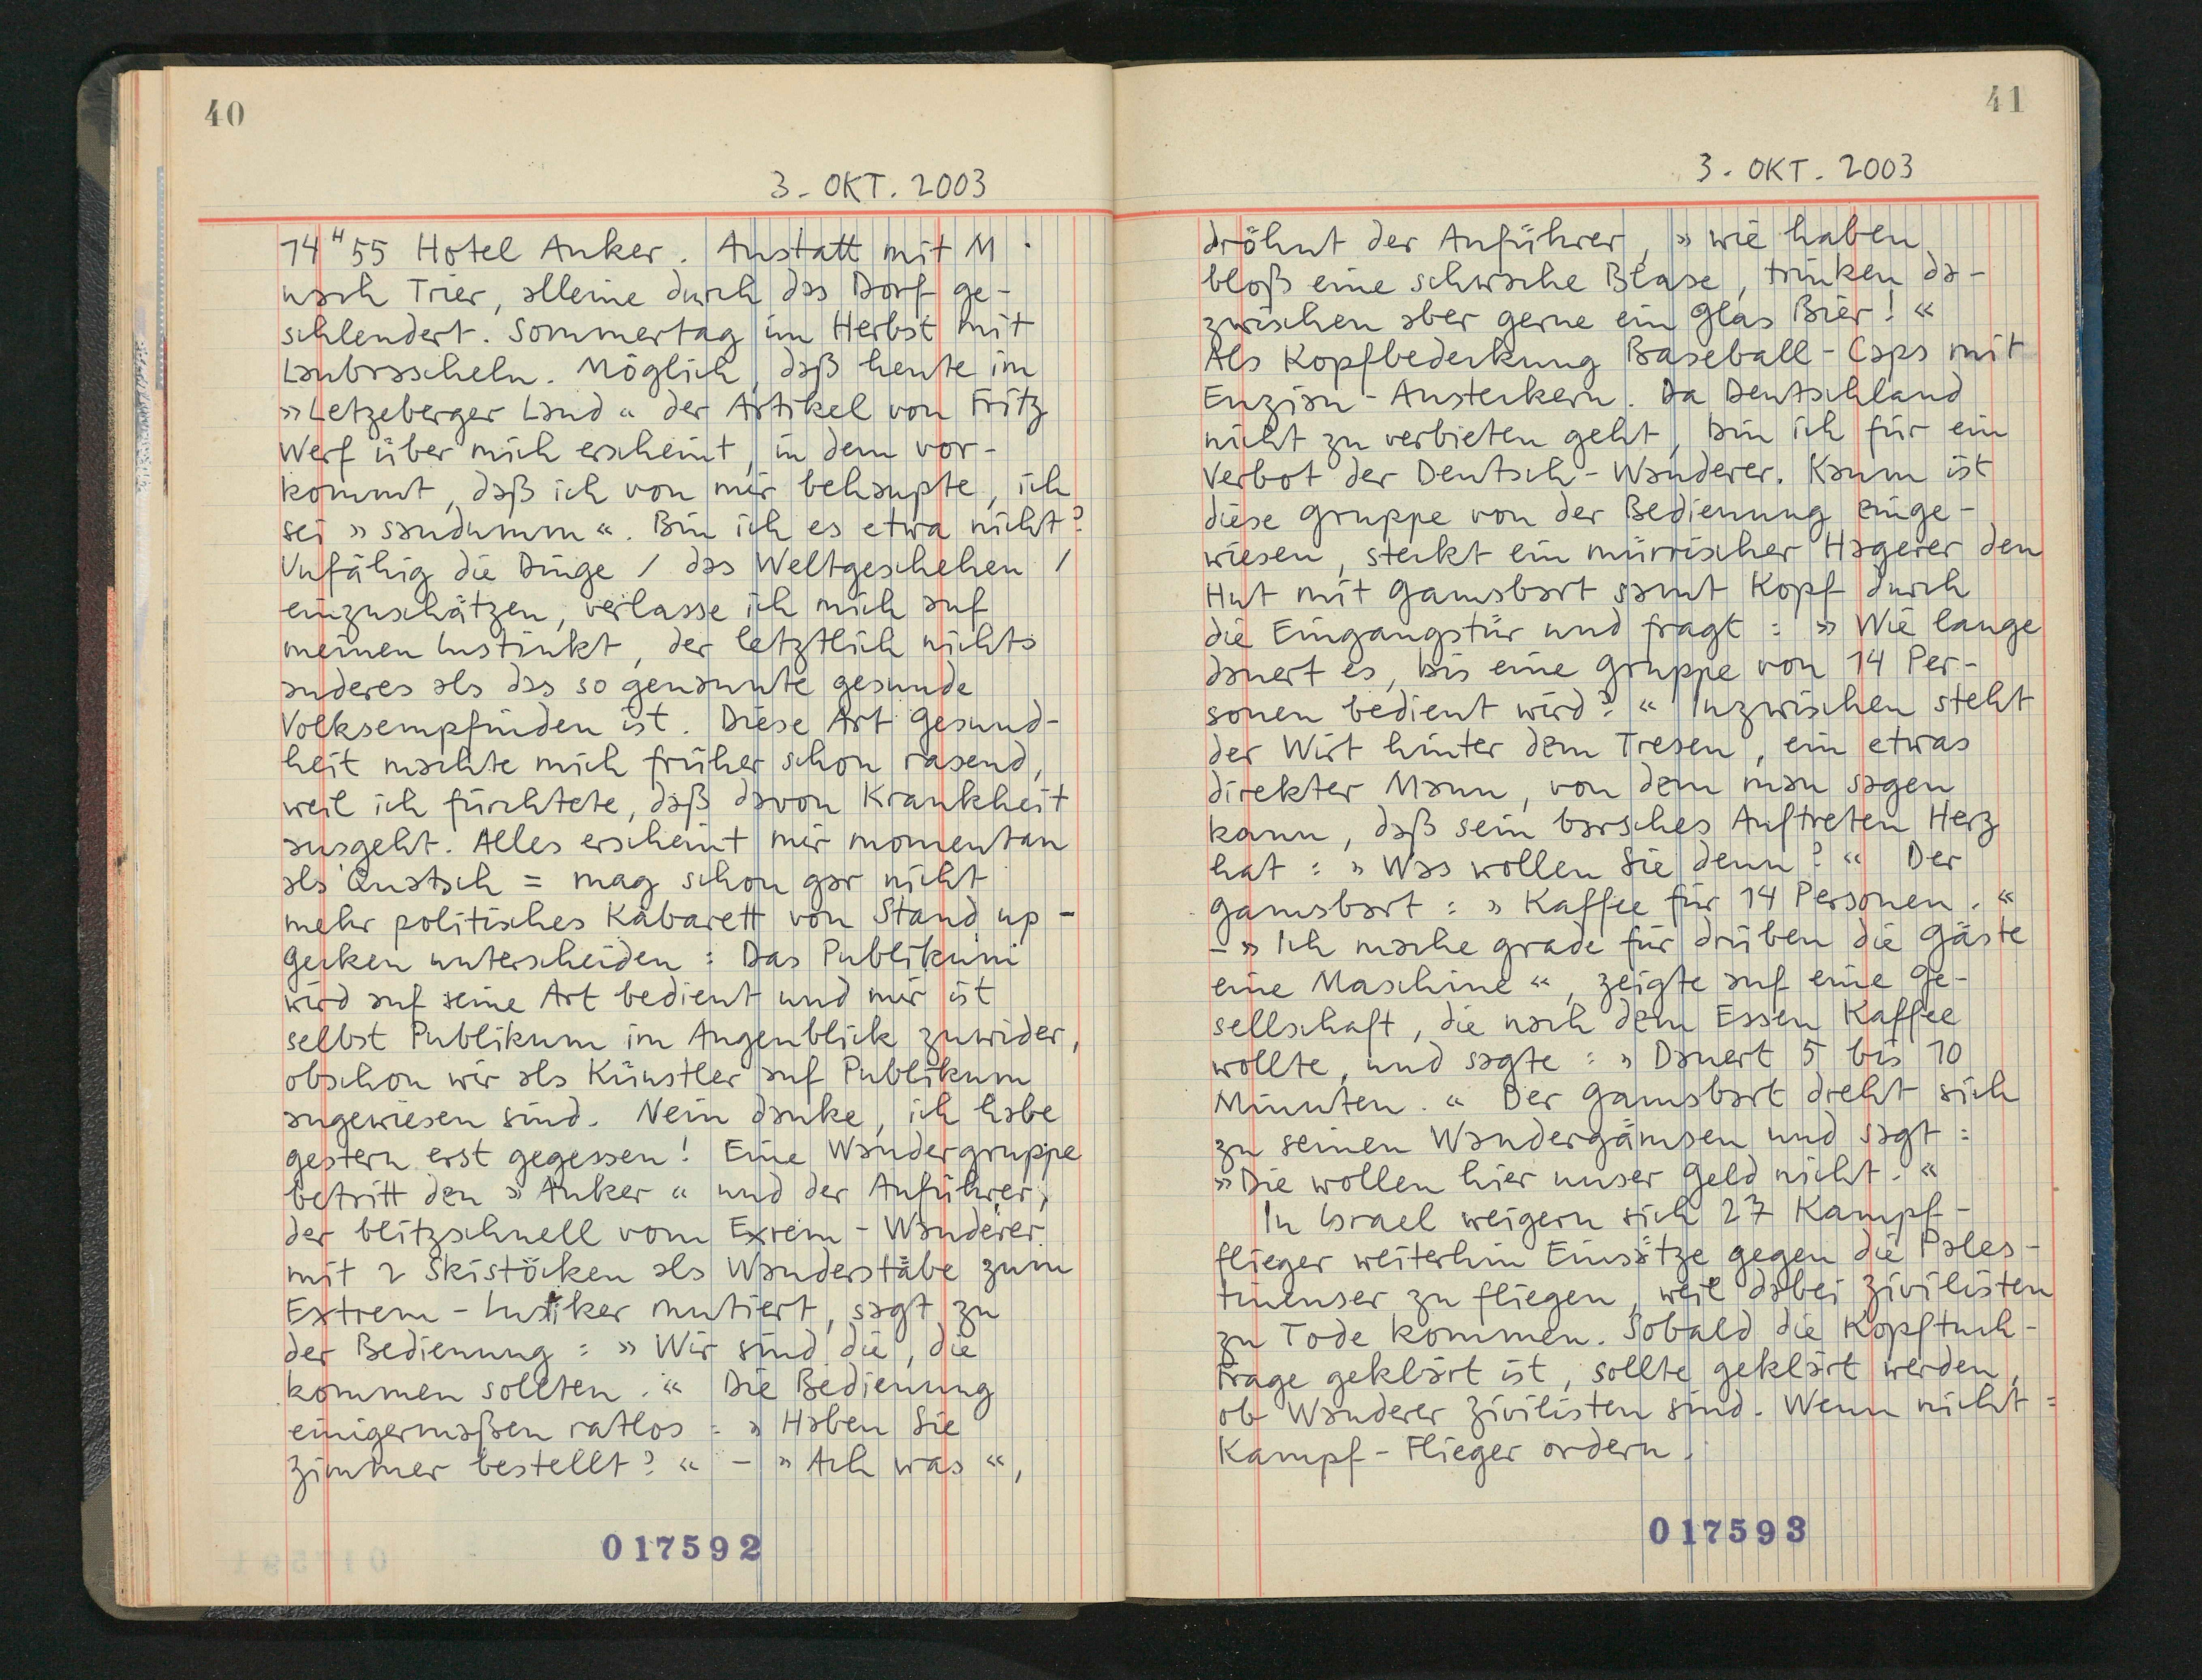 40
3. OKT. 2003
14H55 Hotel Anker. Anstatt mit M
nach Trier, alleine durch das Dorf ge-
schlendert. Sommertag im Herbst mit
Laubrascheln. Möglich, daß heute im
»Letzeberger Land« der Artikel von Fritz
Werf über mich erscheint, in dem vor-
kommt, daß ich von mir behaupte, ich
sei »saudumm«. Bin ich es etwa nicht?
Unfähig die Dinge / das Weltgeschehen /
einzuschätzen, verlasse ich mich auf
meinen Instinkt, der letztlich nichts
anderes als das so genannte gesunde
Volksempfinden ist. Diese Art Gesund-
heit machte mich früher schon rasend,
weil ich fürchtete, daß davon Krankheit
ausgeht. Alles erscheint mir momentan
als Quatsch = mag schon gar nicht
mehr politisches Kabarett von Stand up-
Gecken unterscheiden: Das Publikum
wird auf seine Art bedient und mir ist
selbst Publikum im Augenblick zuwider,
obschon wir als Künstler auf Publikum
angewiesen sind. Nein danke, ich habe
gestern erst gegessen! Eine Wandergruppe
betritt den »Anker« und der Anführer,
der blitzschnell vom Exrem-Wanderer
mit 2 Skistöcken als Wanderstäbe zum
Extrem-Lustiker mutiert, sagt zu
der Bedienung: »Wir sind die, die
kommen sollten.« Die Bedienung
einigermaßen ratlos: »Haben Sie
Zimmer bestellt?« - »Ach was«,
017592
41
3. OKT. 2003
dröhnt der Anführer, »wir haben
bloß eine schwache Blase, trinken da-
zwischen aber gerne ein Glas Bier!«
Als Kopfbedeckung Baseball-Caps mit
Enzian-Ansteckern. Da Deutschland
nicht zu verbieten geht, bin ich für ein
Verbot der Deutsch-Wanderer. Kaum ist
diese Gruppe von der Bedienung einge-
wiesen, steckt ein mürrischer Hagerer den
Hut mit Gamsbart samt Kopf durch
die Eingangstür und fragt: »Wie lange
dauert es, bis eine Gruppe von 14 Per-
sonen bedient wird?« Inzwischen steht
der Wirt hinter dem Tresen, ein etwas
direkter Mann, von dem man sagen
kann, daß sein barsches Auftreten Herz
hat: »Was wollen Sie denn?« Der
Gamsbart: »Kaffee für 14 Personen.«
- »Ich mache grade für drüben die Gäste
eine Maschine«, zeigte auf eine Ge-
sellschaft, die nach dem Essen Kaffee
wollte, und sagte: »Dauert 5 bis 10
Minuten.« Der Gamsbart dreht sich
zu seinen Wandergämsen und sagt:
»Die wollen hier unser Geld nicht.«
In Israel weigern sich 27 Kampf-
flieger weiterhin Einsätze gegen die Paläs-
tinenser zu fliegen, weil dabei Zivilisten
zu Tode kommen. Sobald die Kopftuch-
Frage geklärt ist, sollte geklärt werden,
ob Wanderer Zivilisten sind. Wenn nicht =
Kampf-Flieger ordern.
017593